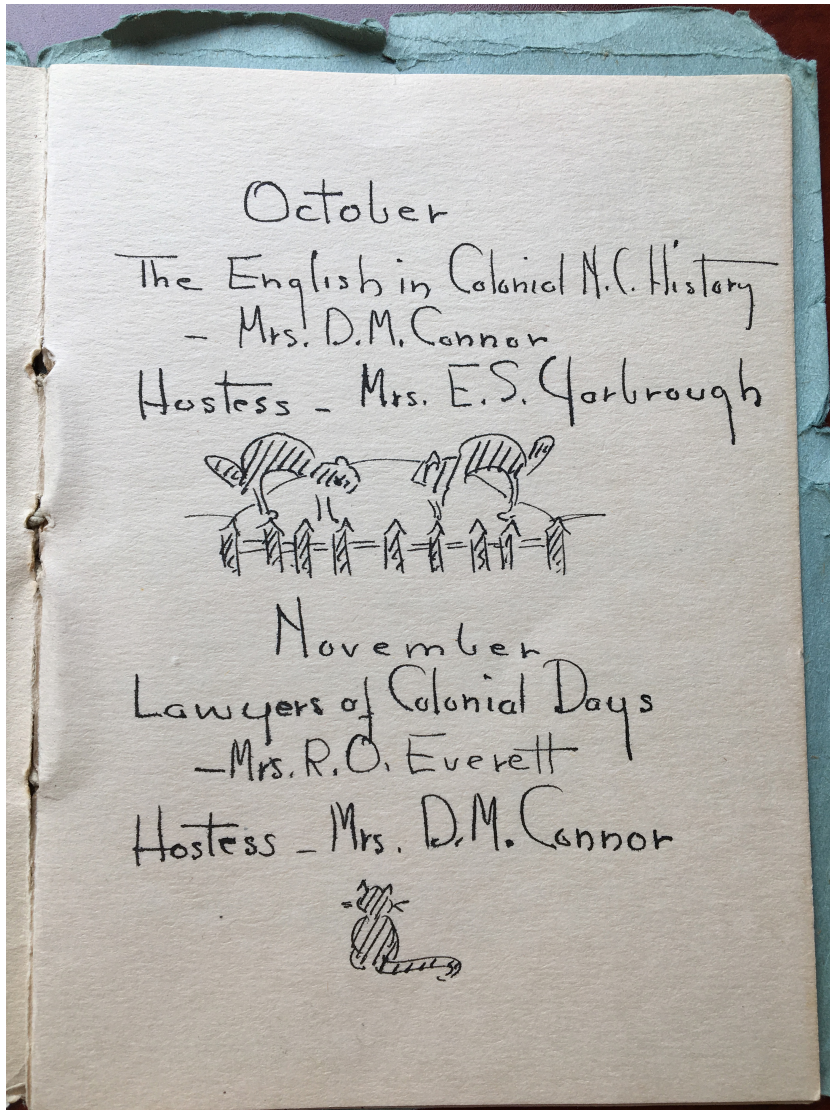 October
The English in Colonial N.C. History
- Mrs. D.M. Connor
Hostess - Mrs. E.S. Yarbrough
November
Lawyers of Colonial Days
- Mrs. R.O. Everett
Hostess - Mrs. D.M. Connor